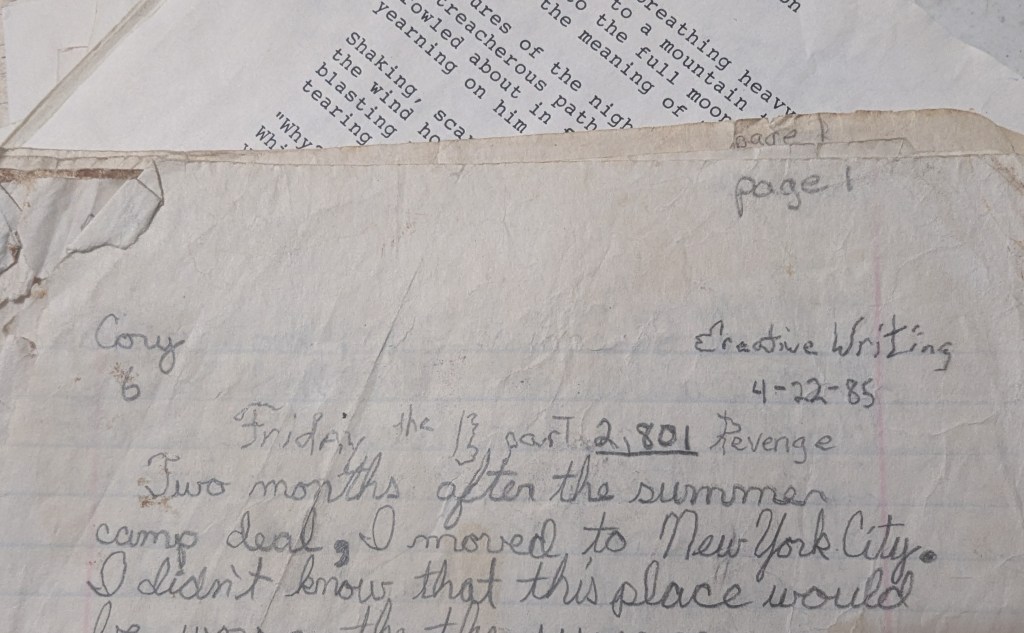 on
breathing heavy
to a mountain
to the full moon
the meaning of
ures of the nigh
treacherous path
rowled about in
yearning on him
Shaking, sca
the wind ho
blasting
tearing
"Why
Whi
page 1
page 1
Cory
6
Creative Writing
4-22-85
Friday the 13 part 2,801 Revenge
Two months after the summer
camp deal, I moved to New York City.
I didn't know that this place would